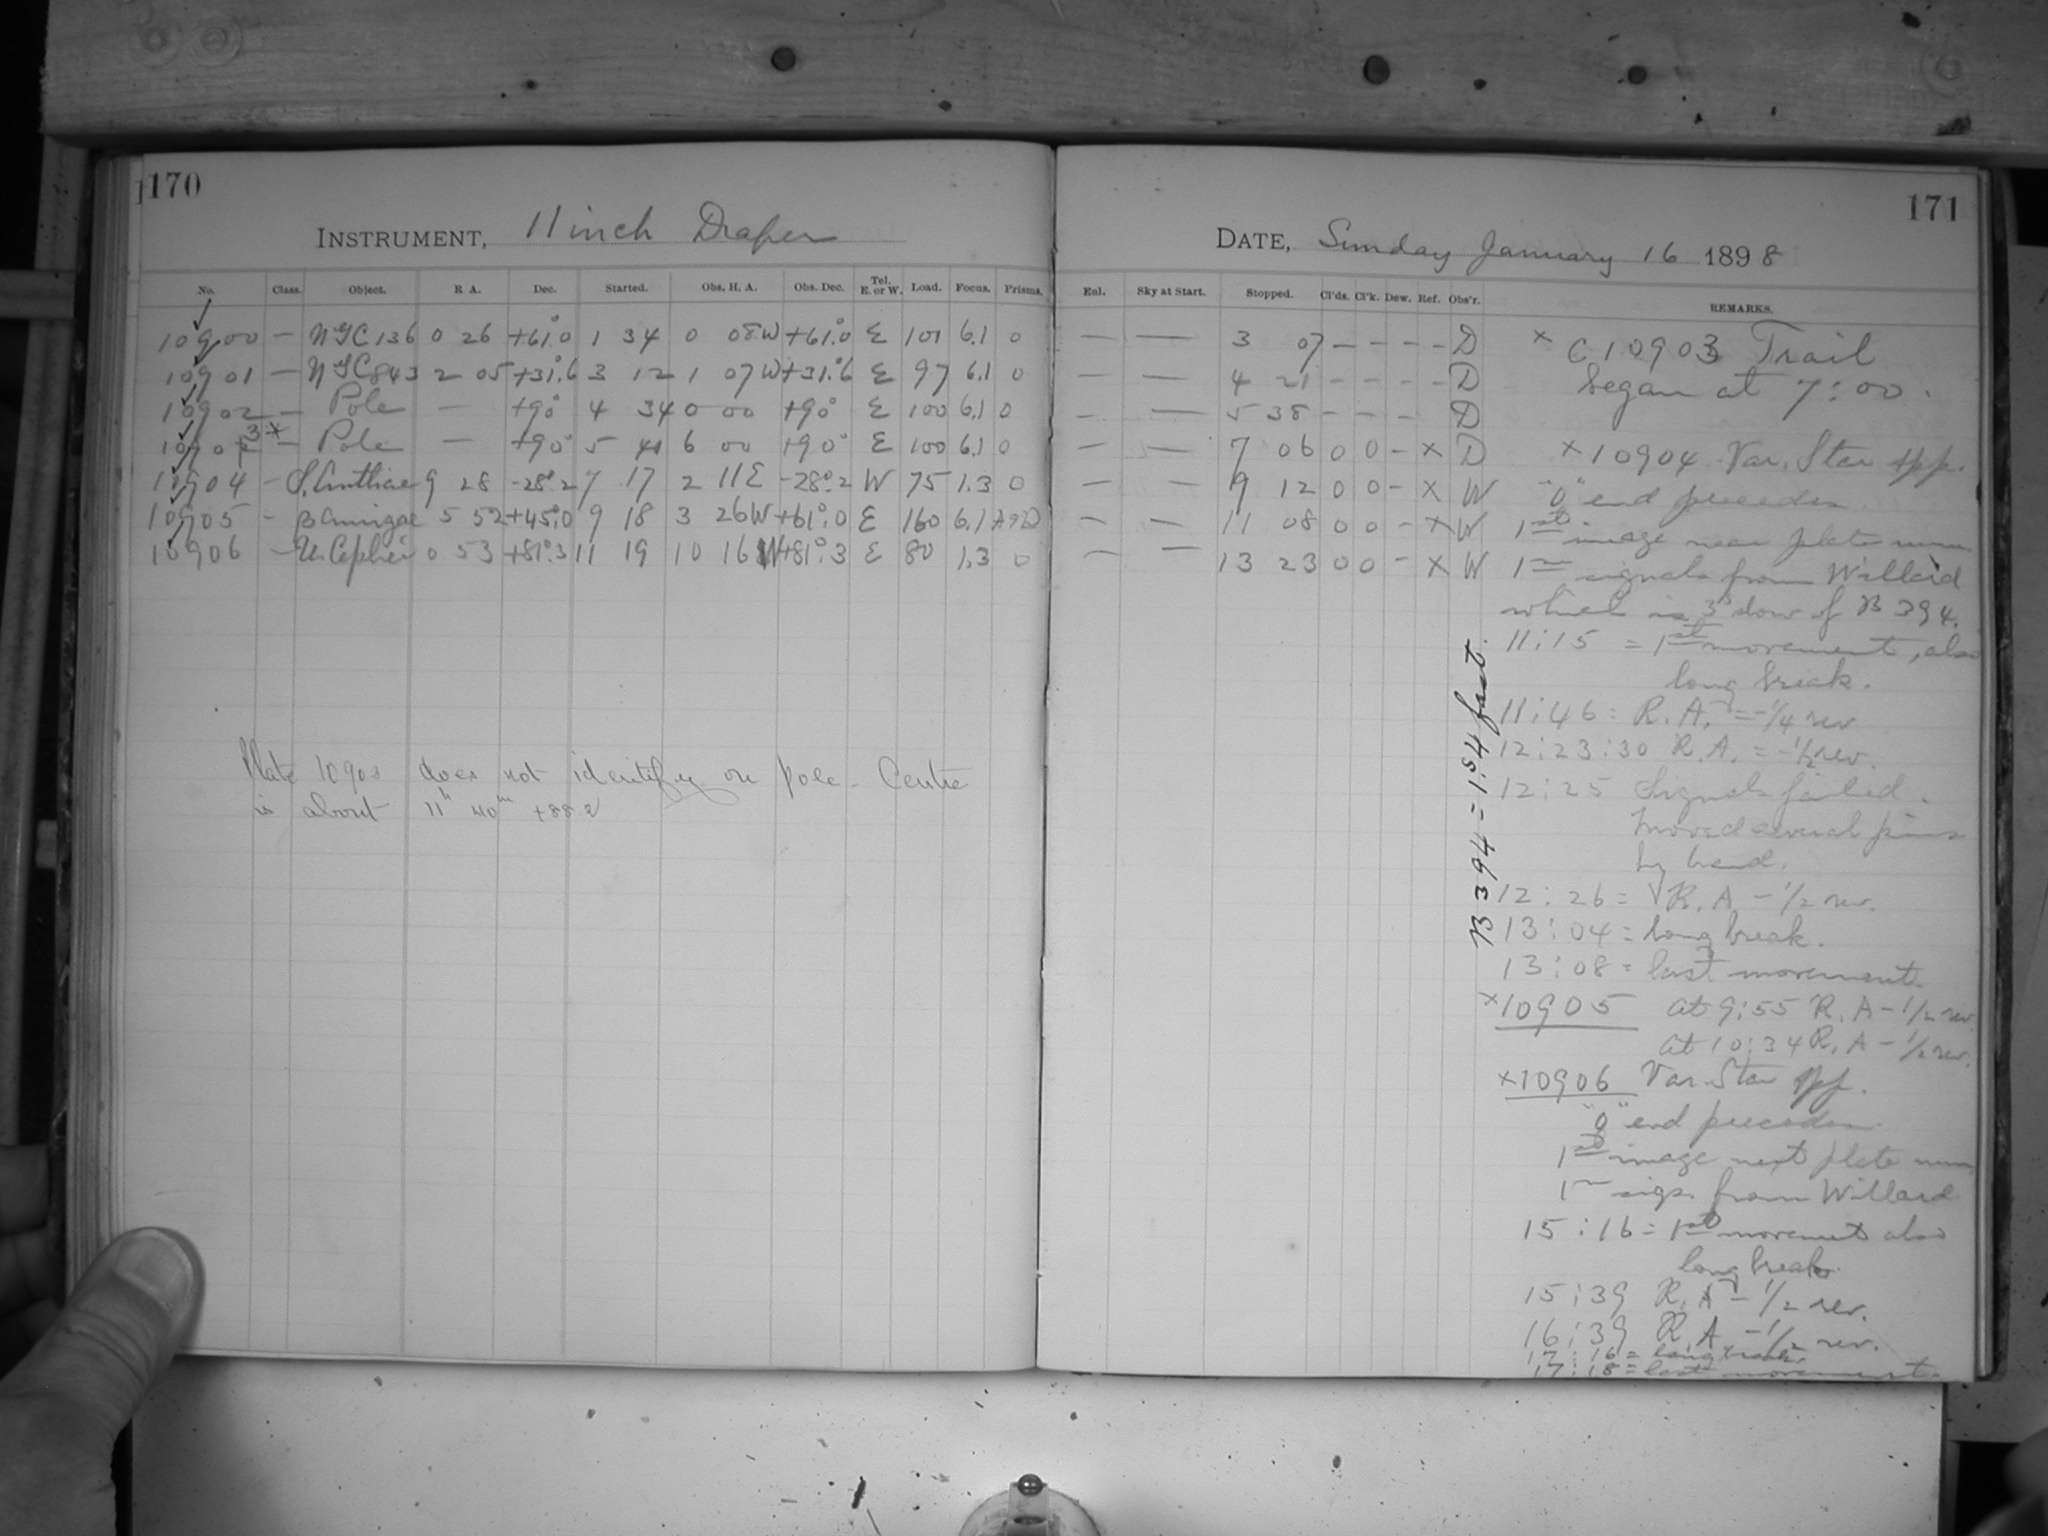 170
INSTRUMENT, 11 inch Draper
No. Class. Object. R A. Dec. Started. Obs. H. A. Obs. Dec. Tel. E. or W. Load. Focus. Prisms.
10900 — NGC 136 0 26 +61°.0 1 34 0 08W +61°.0 E 101 6.1 0
10901 — NGC 843 2 05 +31°.6 3 12 1 07W +31°.6 E 97 6.1 0
10902 — Pole — +90° 4 34 0 00 +90° E 100 6.1 0
10903* — Pole — +90° 5 41 6 00 +90° E 100 6.1 0
10904 - S. Antliae 9 28 -28°.2 7 17 2 11E -28°.2 W 75 1.3 0
10905 - β Aurigae 5 52 +45°.0 9 18 3 26W +61°.0 E 160 6.1
10906 - U. Cephei 0 53 +81°.3 11 19 10 16W +81°.3 E 80 1.3 0
Plate 10903 does not identify on pole - Centre
is about 11h 40m +88.2
171
DATE, Sunday January 16 1898
Enl. Sky at Start. Stopped. Cl'ds. Cl'k. Dew. Ref. Obs'r. REMARKS.
— — 3 07 - - - - D
— — 4 21 - - - - D
- — 5 38 - - - D
— — 7 06 0 0 - x D
— — 9 12 0 0 - x W
— — 11 08 0 0 - x W
— — 13 23 0 0 - x W
x C 10903 Trail
began at 7:00.
x 10904 Var. Star App.
"0" end precedes
1st image near plate num
1m signals from Willard
which is 3s slow of B 394.
11:15 = 1st movement, also
long break.
11:46 = R. A. = -1/4 rev
12:23:30 R. A. = -1/2 rev.
12:25 Signals failed.
Moved several pins
by hand.
12:26 = R. A - 1/2 rev.
13:04 = long break.
13:08 = last movement
x 10905 at 9:55 R. A - 1/2 rev
at 10:34 R. A - 1/2 rev.
x 10906 Var. Star App.
"0" end precedes
1st image next plate num
1m sigs. from Willard
15:16 = 1st movement also
long break
15:39 R. A - 1/2 rev.
16:39 R. A. - 1/2 rev.
17:16 = long break
17:18 = last movement.
B 394 = 1s.54 fast.